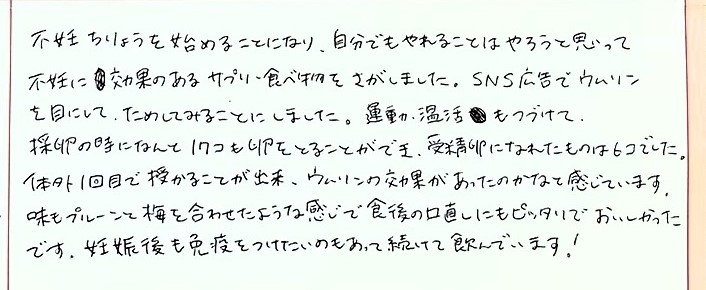 不妊ちりょうを始めることになり、自分でもやれることはやろうと思って
不妊に効果のあるサプリ・食べ物をさがしました。SNS広告でウムリン
を目にして、ためしてみることにしました。運動・温活もつづけて、
採卵の時になんと17コも卵をとることができ、受精卵になれたものは6コでした。
体外1回目で授かることが出来、ウムリンの効果があったのかなと感じています。
味もプルーンと梅を合わせたような感じで食後の口直しにもピッタリでおいしかった
です。妊娠後も免疫をつけたいのもあって続けて飲んでいます!